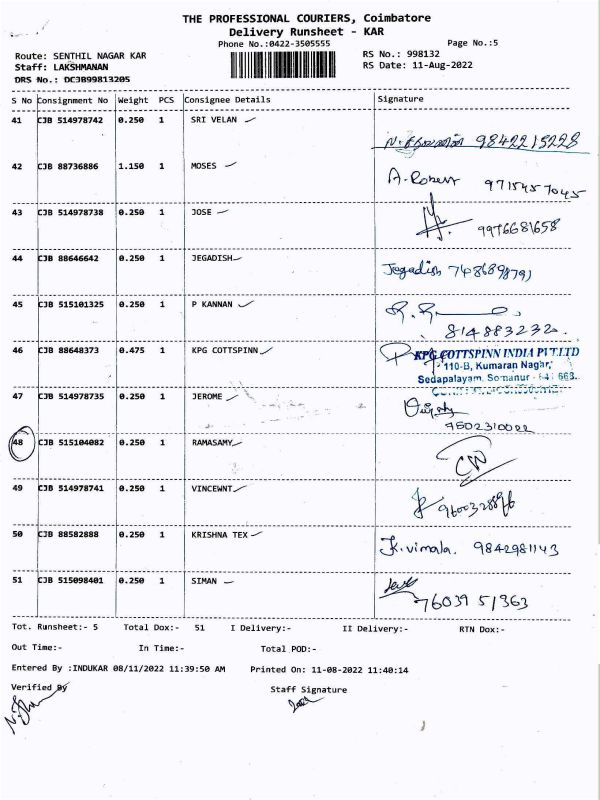 THE PROFESSIONAL COURIERS, Coimbatore
Delivery Runsheet - KAR
Phone No.:0422-3505555
Page No.:5
Route: SENTHIL NAGAR KAR
RS No.: 998132
Staff: LAKSHMANAN
RS Date: 11-Aug-2022
DRS No.: DCJB99813205
S No Consignment No Weight PCS Consignee Details Signature
41 CJB 514978742 0.250 1 SRI VELAN
9842215228
42 CJB 88736886 1.150 1 MOSES
A. Robert 9715457045
43 CJB 514978738 0.250 1 JOSE
9976681658
44 CJB 88646642 0.250 1 JEGADISH
Jegadish
45 CJB 515101325 0.250 1 P KANNAN
8148832320.
46 CJB 88648373 0.475 1 KPG COTTSPINN
KPG COTTSPINN INDIA PVT.LTD
110-B, Kumaran Nagar,
Sedapalayam, Somanur - 641 668.
47 CJB 514978735 0.250 1 JEROME
9502310022
48 CJB 515104082 0.250 1 RAMASAMY
49 CJB 514978741 0.250 1 VINCEWNT
50 CJB 88582888 0.250 1 KRISHNA TEX
K. vimala. 9842981143
51 CJB 515098401 0.250 1 SIMAN
76039 51363
Tot. Runsheet:- 5 Total Dox:- 51 I Delivery:- II Delivery:- RTN Dox:-
Out Time:- In Time:- Total POD:-
Entered By :INDUKAR 08/11/2022 11:39:50 AM Printed On: 11-08-2022 11:40:14
Verified By
Staff Signature